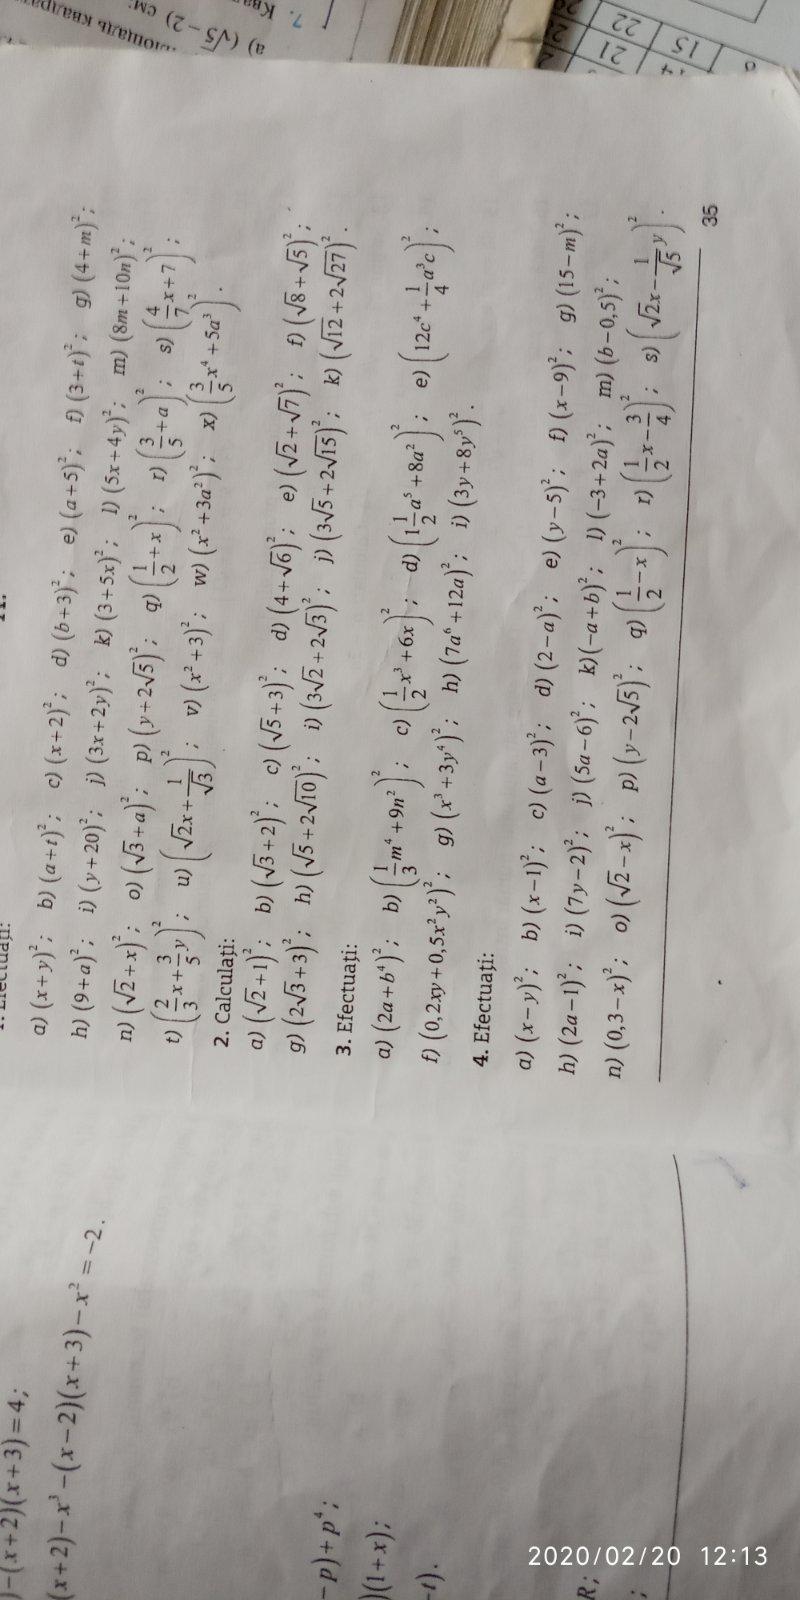 1. Efectuați:
a) (x+y)²; b) (a+t)²; c) (x+2)²; d) (b+3)²; e) (a+5)²; f) (3+t)²; g) (4+m)²;
h) (9+a)²; i) (y+20)²; j) (3x+2y)²; k) (3+5x)²; l) (5x+4y)²; m) (8m+10n)²;
n) (√2+x)²; o) (√3+a)²; p) (y+2√5)²; q) (1/2+x)²; r) (3/5+a)²; s) (4/7x+7)²;
t) (2/3x+3/5y)²; u) (√2x+1/√3)²; v) (x²+3)²; w) (x²+3a²)²; x) (3/5x⁴+5a³)².
2. Calculați:
a) (√2+1)²; b) (√3+2)²; c) (√5+3)²; d) (4+√6)²; e) (√2+√7)²; f) (√8+√5)²;
g) (2√3+3)²; h) (√5+2√10)²; i) (3√2+2√3)²; j) (3√5+2√15)²; k) (√12+2√27)².
3. Efectuați:
a) (2a+b⁴)²; b) (1/3m⁴+9n²)²; c) (1/2x³+6x)²; d) (1 1/2a⁵+8a²)²; e) (12c⁴+1/4a³c)²;
f) (0,2xy+0,5x²y²)²; g) (x³+3y⁴)²; h) (7a⁶+12a)²; i) (3y+8y⁵)².
4. Efectuați:
a) (x−y)²; b) (x−1)²; c) (a−3)²; d) (2−a)²; e) (y−5)²; f) (x−9)²; g) (15−m)²;
h) (2a−1)²; i) (7y−2)²; j) (5a−6)²; k) (−a+b)²; l) (−3+2a)²; m) (b−0,5)²;
n) (0,3−x)²; o) (√2−x)²; p) (y−2√5)²; q) (1/2−x)²; r) (1/2x−3/4)²; s) (√2x−1/√5y)².
35
)−(x+2)(x+3)=4;
(x+2)−x³−(x−2)(x+3)−x²=−2.
−p)+p⁴;
)(1+x);
−t).
R;
;
7.
a) (√5−2) см;
15
21
22
2020/02/20 12:13